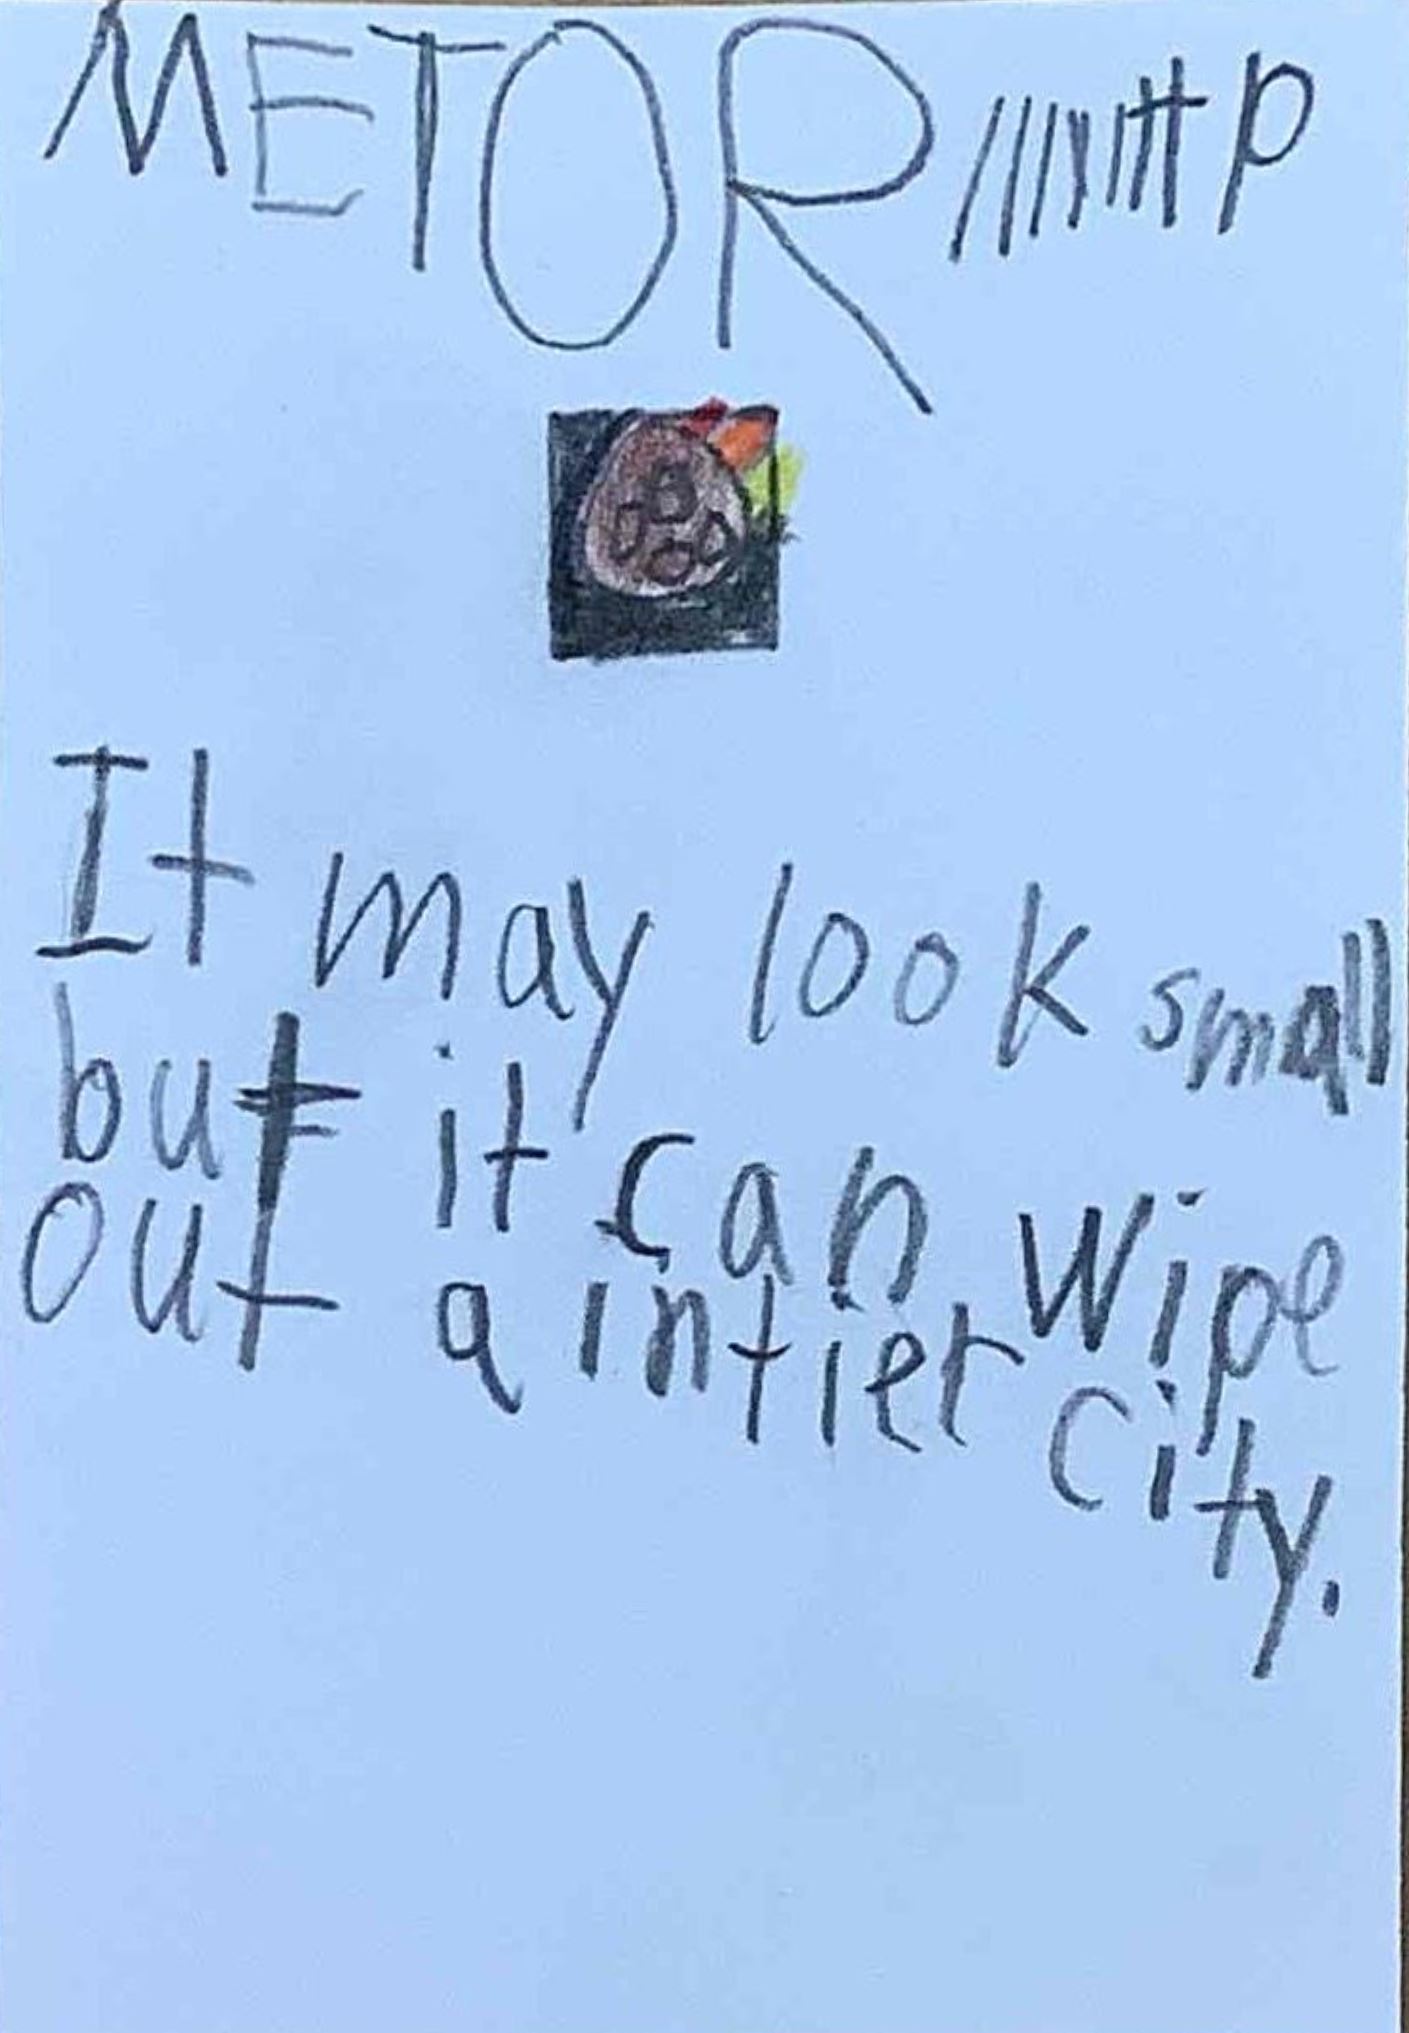 METOR //////HP
It may look small
but it can wipe
out a intier city.